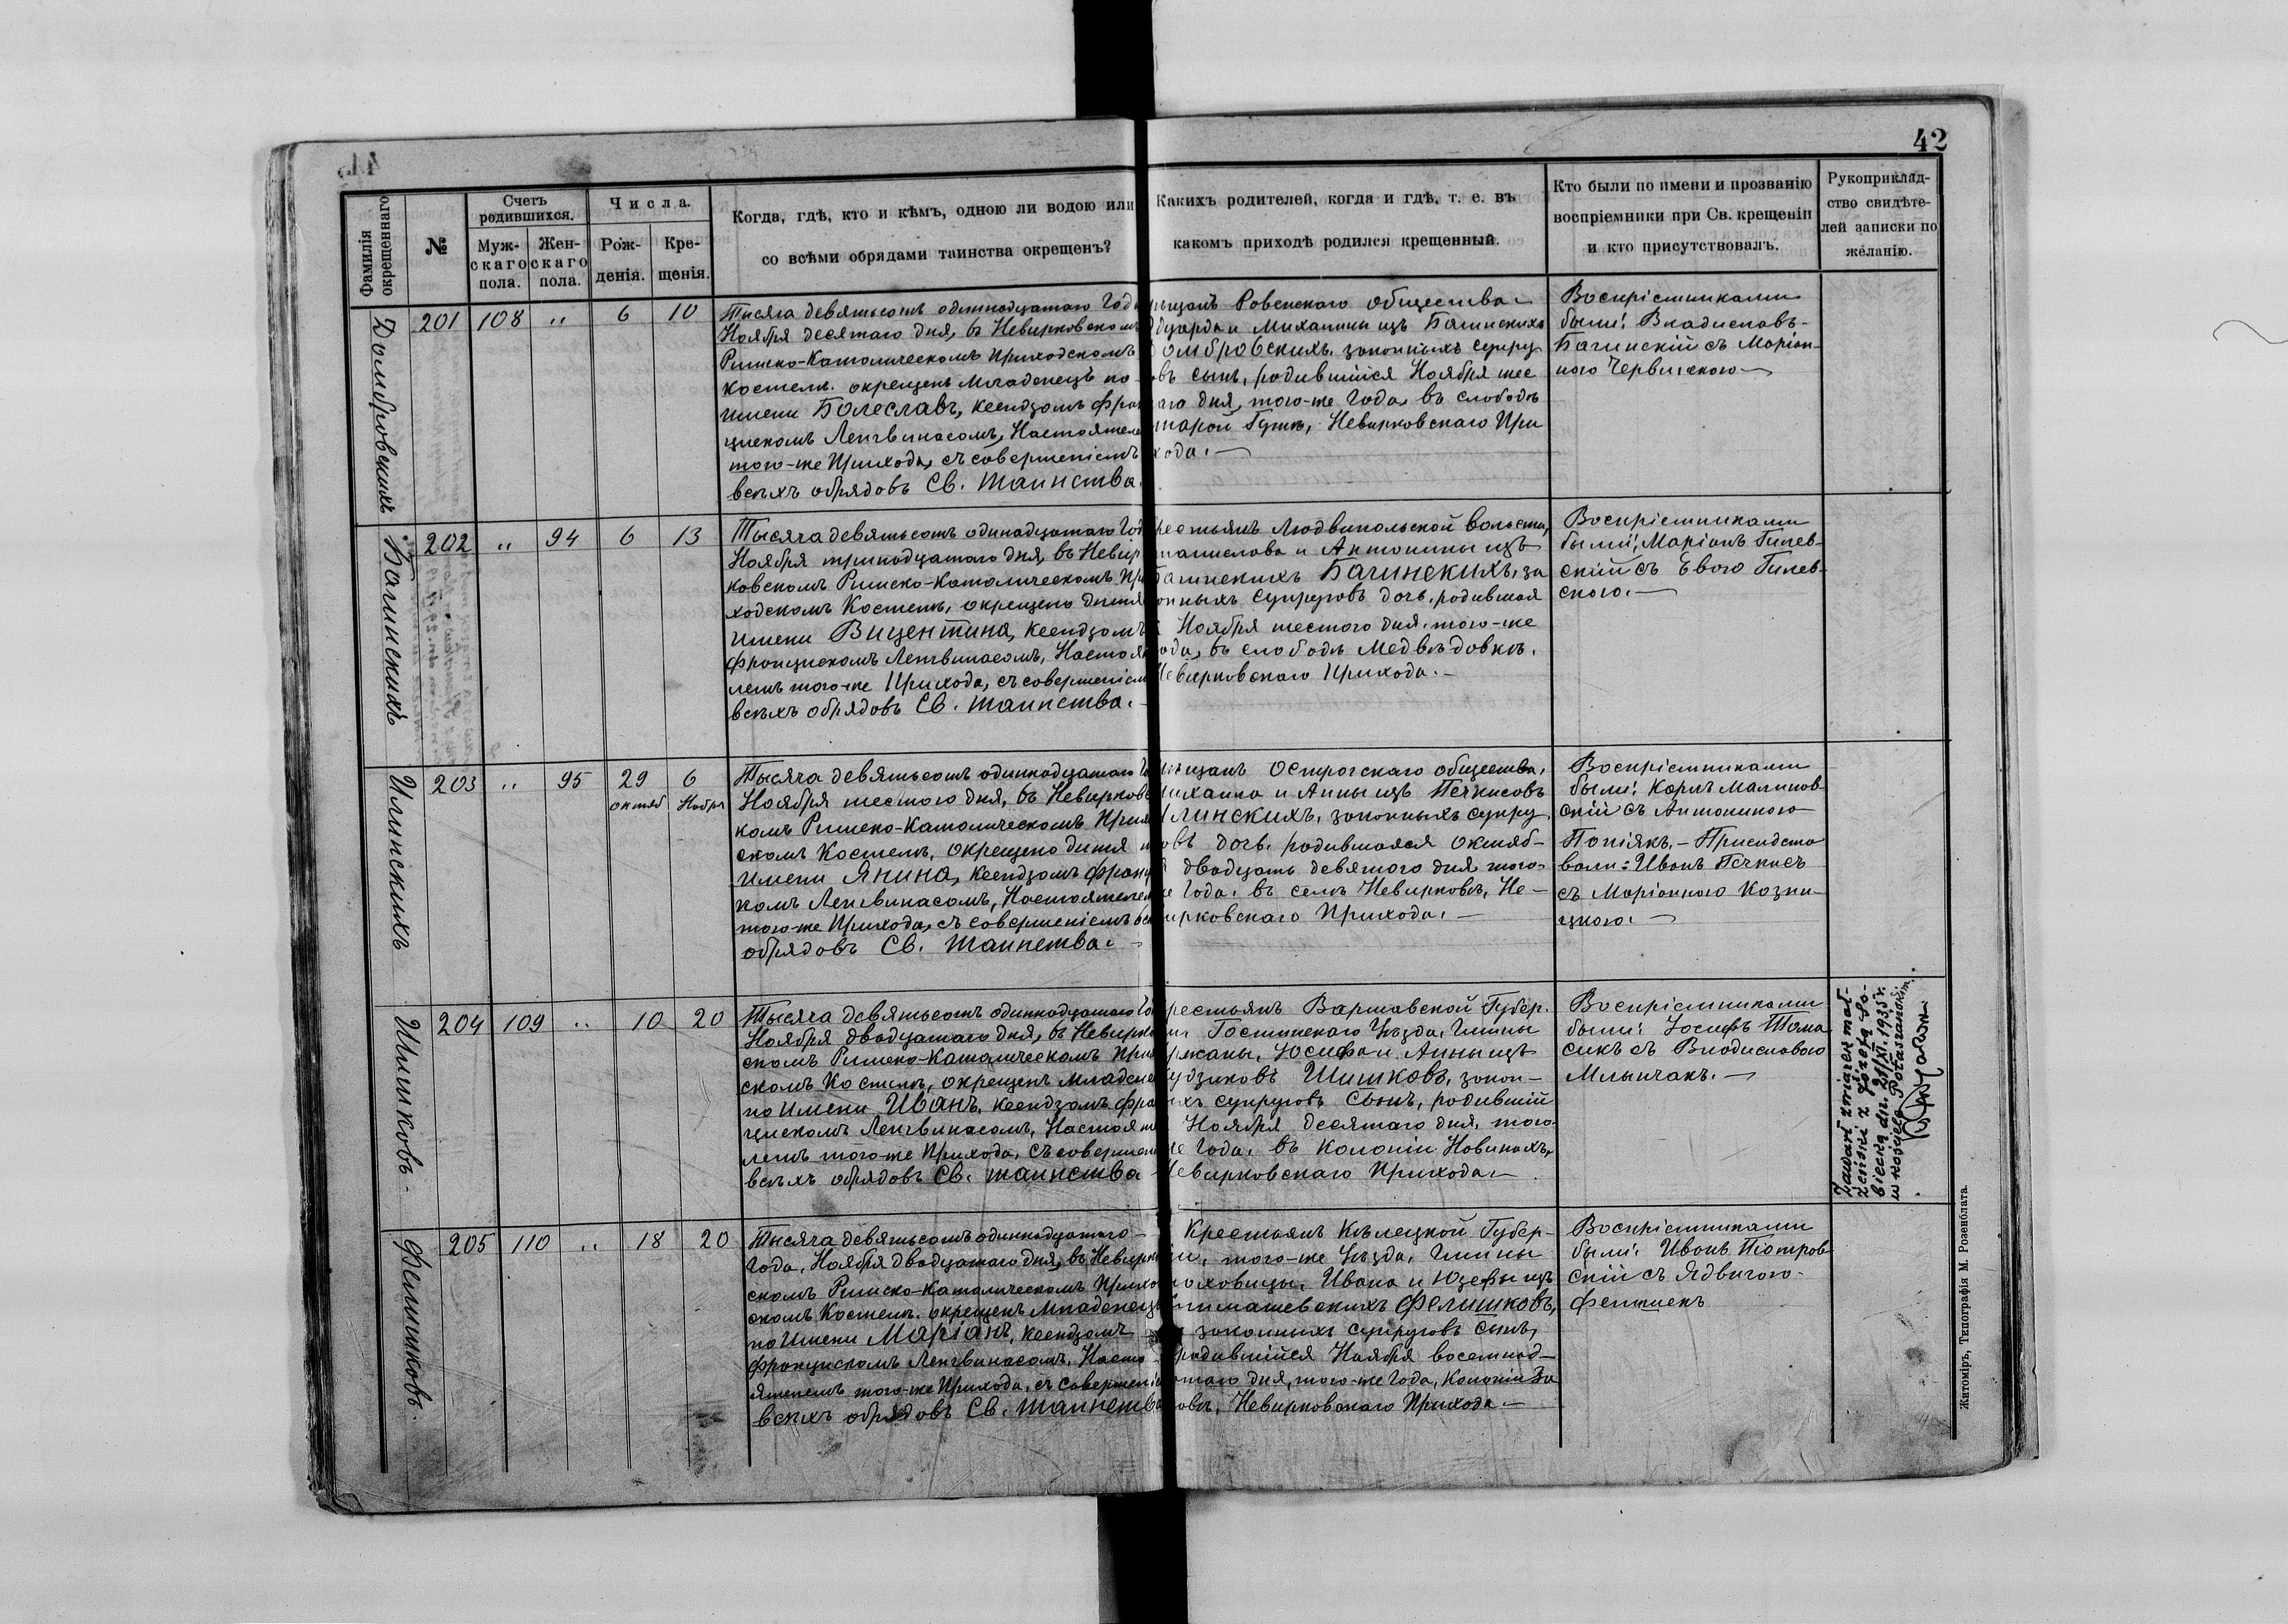 42
Фамилія окрещеннаго
№
Счетъ родившихся.
Муж-
скаго
пола.
Жен-
скаго
пола.
Числа.
Рож-
денія.
Кре-
щенія.
Когда, гдѣ, кто и кѣмъ, одною ли водою или
со всѣми обрядами таинства окрещенъ?
Какихъ родителей, когда и гдѣ, т. е. въ
какомъ приходѣ родился крещенный.
Кто были по имени и прозванію
воспріемники при Св. крещеніи
и кто присутствовалъ.
Рукоприклад-
ство свидѣте-
лей записки по
желанію.
Домбровскихъ
201 108 „ 6 10
Тысяча девятьсотъ одиннадцатаго Года
Ноября десятаго дня, въ Невирковскомъ
Римско-Католическомъ Приходскомъ
Костелѣ. окрещенъ Младенецъ по
имени Болеславъ, Ксендзомъ Фран
цискомъ Ленгвинасомъ, Настоятеле
того-же Прихода, съ совершеніемъ
всѣхъ обрядовъ Св. Таинства.
щанъ Ровенскаго общества
дуарда и Михалины изъ Багинскихъ
омбровскихъ, законныхъ супру
овъ сынъ, родившійся Ноября шес
таго дня, того-же Года, въ слободѣ
тарой Гутѣ, Невирковскаго При
хода.
Воспріемниками
были: Владиславъ
Багинскій съ Маріан-
ною Червинскою
Багинскихъ
202 „ 94 6 13
Тысяча девятьсотъ одинадцатаго Год
Ноября тринадцатаго дня, въ Невир
ковскомъ Римско-Католическомъ При
ходскомъ Костелѣ, окрещено дитя
имени Вицентина, Ксендзомъ
Францискомъ Ленгвинасомъ, Настоя
лемъ того-же Прихода, съ совершеніем
всѣхъ обрядовъ Св. Таинства.
рестьянъ Людвипольской волости,
танислава и Антонины изъ
Багинскихъ Багинскихъ, за
онныхъ супруговъ дочь, родившая
Ноября шестого дня, того-же
ода, въ слободѣ Медвѣдовкѣ,
Невирковскаго Прихода.
Воспріемниками
были: Маріанъ Гилев-
скій съ Евою Гилев-
скою.
Илинскихъ
203 „ 95 29 6
октяб Ноября
Тысяча девятьсотъ одиннадцатаго Го
Ноября шестого дня, въ Невирковс
комъ Римско-Католическомъ Прихо
скомъ Костелѣ, окрещено дитя п
имени Янина, Ксендзомъ Франц
комъ Ленгвинасомъ, Настоятелем
того-же Прихода, съ совершеніемъ вс
обрядовъ Св. Таинства.
щанъ Острогскаго общества,
ихаила и Анны изъ Печкисовъ
Илинскихъ, законныхъ супру
овъ дочь, родившаяся октяб-
я двадцать девятого дня того-
же Года, въ селѣ Невирковѣ, Не-
вирковскаго Прихода.
Воспріемниками
были: Карлъ Малинов
скій съ Антониною
Попіякъ. - Присидство
вали: Иванъ Печкисъ
съ Маріанною Козни
цкою.
Шишковъ
204 109 „ 10 20
Тысяча девятьсотъ одиннадцатаго Го
Ноября двадцатаго дня, въ Невирко
скомъ Римско-Католическомъ Прихо
скомъ Костелѣ, окрещенъ младене
по имени Иванъ, Ксендзомъ Фран
цискомъ Ленгвинасомъ, Настояте
лемъ того-же Прихода, съ совершен
всѣхъ обрядовъ Св. таинства
рестьянъ Варшавской Губер.
Гостинскаго Уѣзда, Гмины
Іосифа и Анны изъ
Шишковъ, закон-
ыхъ супруговъ сынъ, родившій
Ноября десятаго дня, того-
же Года, въ Колоніи Новинахъ,
Невирковскаго Прихода.
Воспріемниками
были: Іосифъ Тома
сикъ съ Владиславою
Млынчакъ.
Zawarł związek mał-
żeński z Józefą So-
biecką dn. 21/XI. 1935 r.
w kościele Potaszańskim.
Фелишковъ
205 110 „ 18 20
Тысяча девятьсотъ одиннадцатого
Года, Ноября двадцатаго дня, въ Невирко
скомъ Римско-Католическомъ Прихо
скомъ Костелѣ. окрещенъ Младенецъ
по имени Маріанъ, Ксендзомъ
Францискомъ Ленгвинасомъ, Насто-
ятелемъ того-же Прихода, съ совершеніе
всѣхъ обрядовъ Св. таинства
Крестьянъ Кѣлецкой Губер-
ніи, того-же Уѣзда, Гмины
Ивана и Юзефы изъ
Фелишковъ,
законныхъ супруговъ сынъ,
родившійся Ноября восемнад-
цатаго дня, того-же Года, Колоніи За
Невирковскаго Прихода.
Воспріемниками
были: Иванъ Піотров
скій съ Ядвигою
Житоміръ, Типографія М. Розенблата.